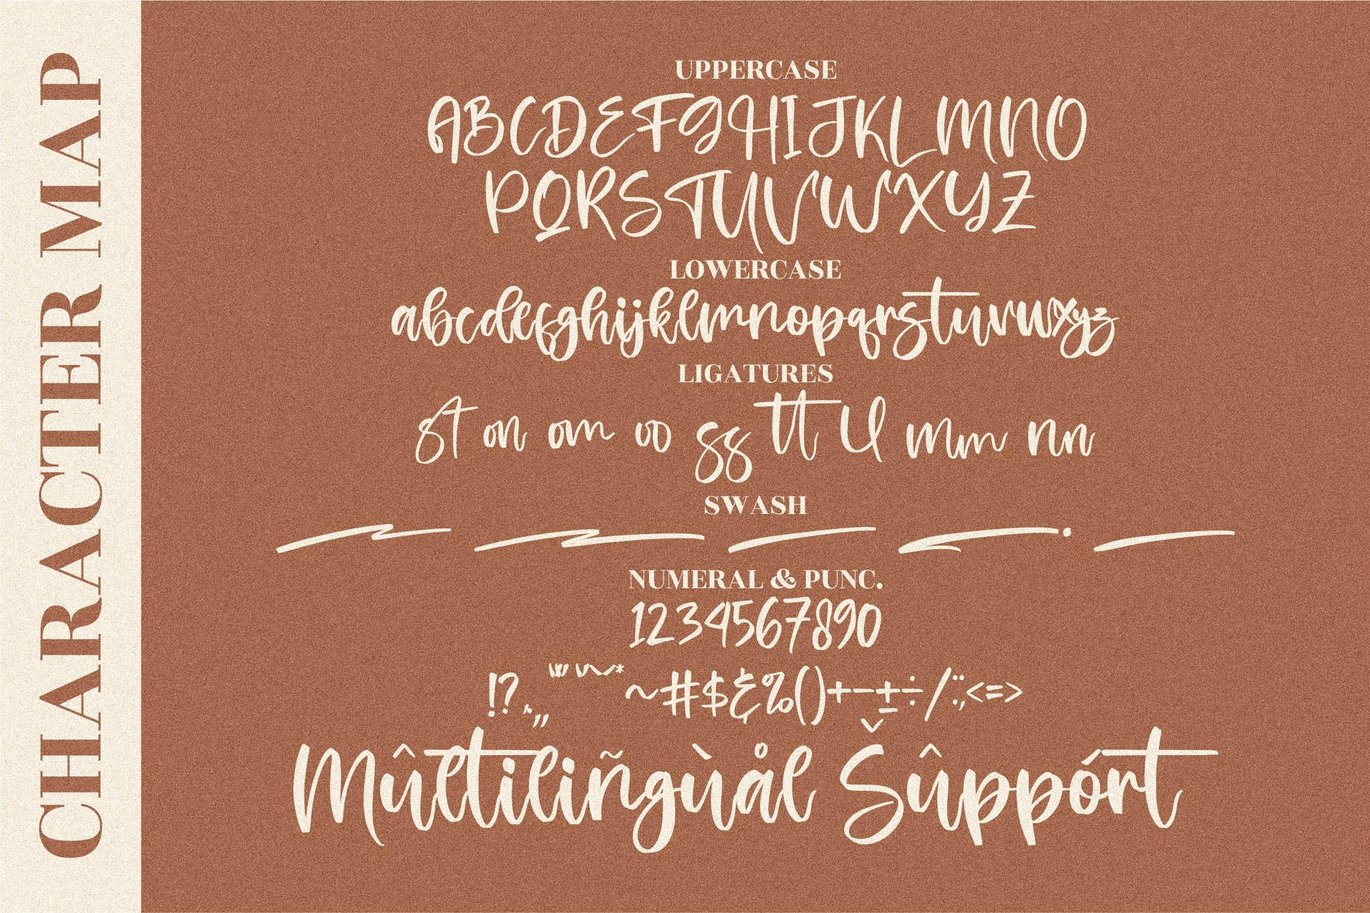 CHARACTER MAP
UPPERCASE
ABCDEFGHIJKLMNO
PQRSTUVWXYZ
LOWERCASE
abcdefghijklmnopqrstuvwxyz
LIGATURES
st on om oo ss tt ll mm nn
SWASH
NUMERAL & PUNC.
1234567890
~#$&%()+-±÷/:;,<=>
Mûltiliñgùål Šûppórt